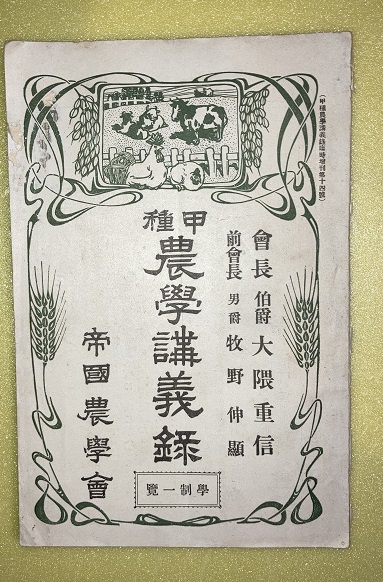 （甲種農學講義錄臨時增刊第十四號）
會長 伯爵 大隈重信
前會長 男爵 牧野伸顯
甲種
農學講義錄
學制一覽
帝國農學會